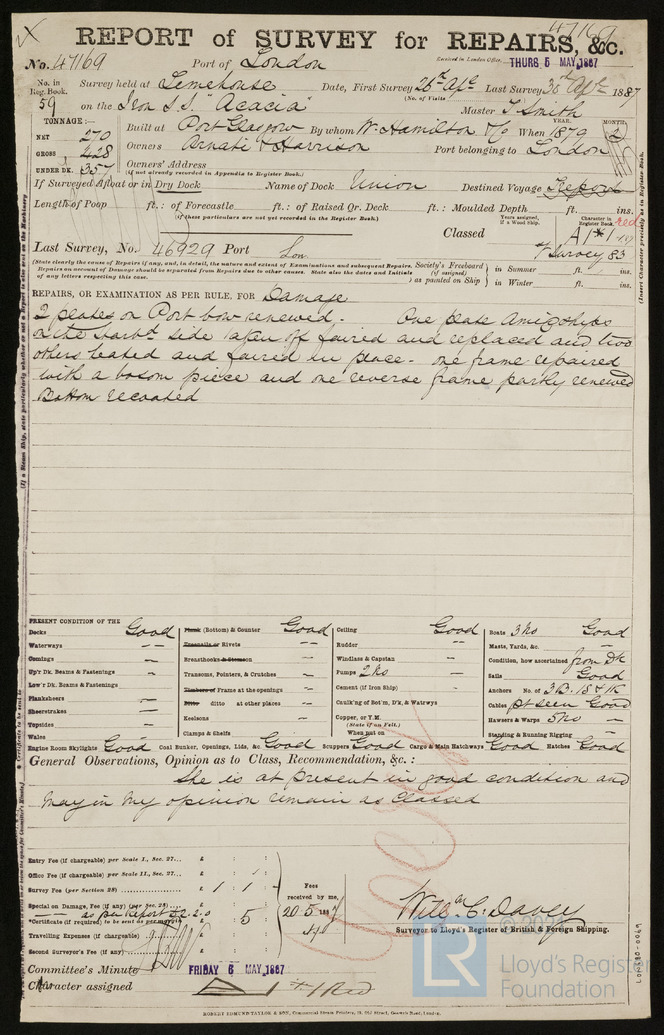 47169
REPORT of SURVEY for REPAIRS, &c.
No. 47169 Port of London Received in London Office, THURS 5 MAY 1887
No. in Reg. Book. Survey held at Limehouse Date, First Survey 26th Apl Last Survey 30th Apl 1887
(No. of Visits)
59 on the Iron S.S. "Acacia" Master T Smith
TONNAGE:—
NET 270
GROSS 428
UNDER DK. 357
Built at Port Glasgow By whom W. Hamilton & Co When 1879
YEAR. MONTH.
Owners Arnati & Harrison Port belonging to London
Owners' Address
(if not already recorded in Appendix to Register Book.)
If Surveyed Afloat or in Dry Dock Name of Dock Union Destined Voyage
Length of Poop ft.: of Forecastle ft.: of Raised Qr. Deck ft.: Moulded Depth ft. ins.
(if these particulars are not yet recorded in the Register Book.)
Years assigned, if a Wood Ship. Character in Register Book. red
Classed A1*1
Last Survey, No. 46929 Port Lon
Survey 83
(State clearly the cause of Repairs if any, and, in detail, the nature and extent of Examinations and subsequent Repairs.
Repairs on account of Damage should be separated from Repairs due to other causes. State also the dates and Initials
of any letters respecting this case.
Society's Freeboard (if assigned) as painted on Ship in Summer ft. ins.
in Winter ft. ins.
REPAIRS, OR EXAMINATION AS PER RULE, FOR Damage
2 plates on Port bow renewed. One plate amidships
on the starbd side taken off faired and replaced and two
others heated and faired in place. One frame repaired
with a bosom piece and one reverse frame partly renewed
Bottom recoated
PRESENT CONDITION OF THE
Decks Good
Waterways
Comings
Up'r Dk. Beams & Fastenings
Low'r Dk. Beams & Fastenings
Planksheers
Sheerstrakes
Topsides
Wales
Plank (Bottom) & Counter Good
Treenails or Rivets
Breasthooks & Stemson
Transoms, Pointers, & Crutches
Timbers of Frame at the openings
Ditto ditto at other places
Keelsons
Clamps & Shelfs
Ceiling Good
Rudder
Windlass & Capstan
Pumps 2 No
Cement (if Iron Ship)
Caulk'g of Bot'm, D'k, & Watrwys
Copper, or Y.M.
(State if on Felt.)
When put on
Boats 3 No Good
Masts, Yards, &c.
Condition, how ascertained from Dk
Sails Good
Anchors No. of 3B. 1S & 1K
Cables pt seen Good
Hawsers & Warps 5 No
Standing & Running Rigging
Engine Room Skylights Good Coal Bunker, Openings, Lids, &c. Good Scuppers Good Cargo & Main Hatchways Good Hatches Good
General Observations, Opinion as to Class, Recommendation, &c.:
She is at present in good condition and
may in my opinion remain as classed
Entry Fee (if chargeable) per Scale I., Sec. 27... £ : :
Office Fee (if chargeable) per Scale II., Sec. 27... £ : :
Survey Fee (per Section 28) £ 1 : 1 :
Special on Damage, Fee (if any) (per Sec. 28) £
as per Report £2.2.0
*Certificate (if required) to be sent as per margin : 5
Travelling Expenses (if chargeable) £ : :
Second Surveyor's Fee (if any) £ : :
Fees received by me, 20.5 1887
Willm C. Davey
Surveyor to Lloyd's Register of British & Foreign Shipping.
Committee's Minute FRIDAY 6 MAY 1887
Character assigned A1 Red
ROBERT EDMUND TAYLOR & SON, Commercial Steam Printers, 19, Old Street, Goswell Road, London.
LR
Lloyd's Register
Foundation